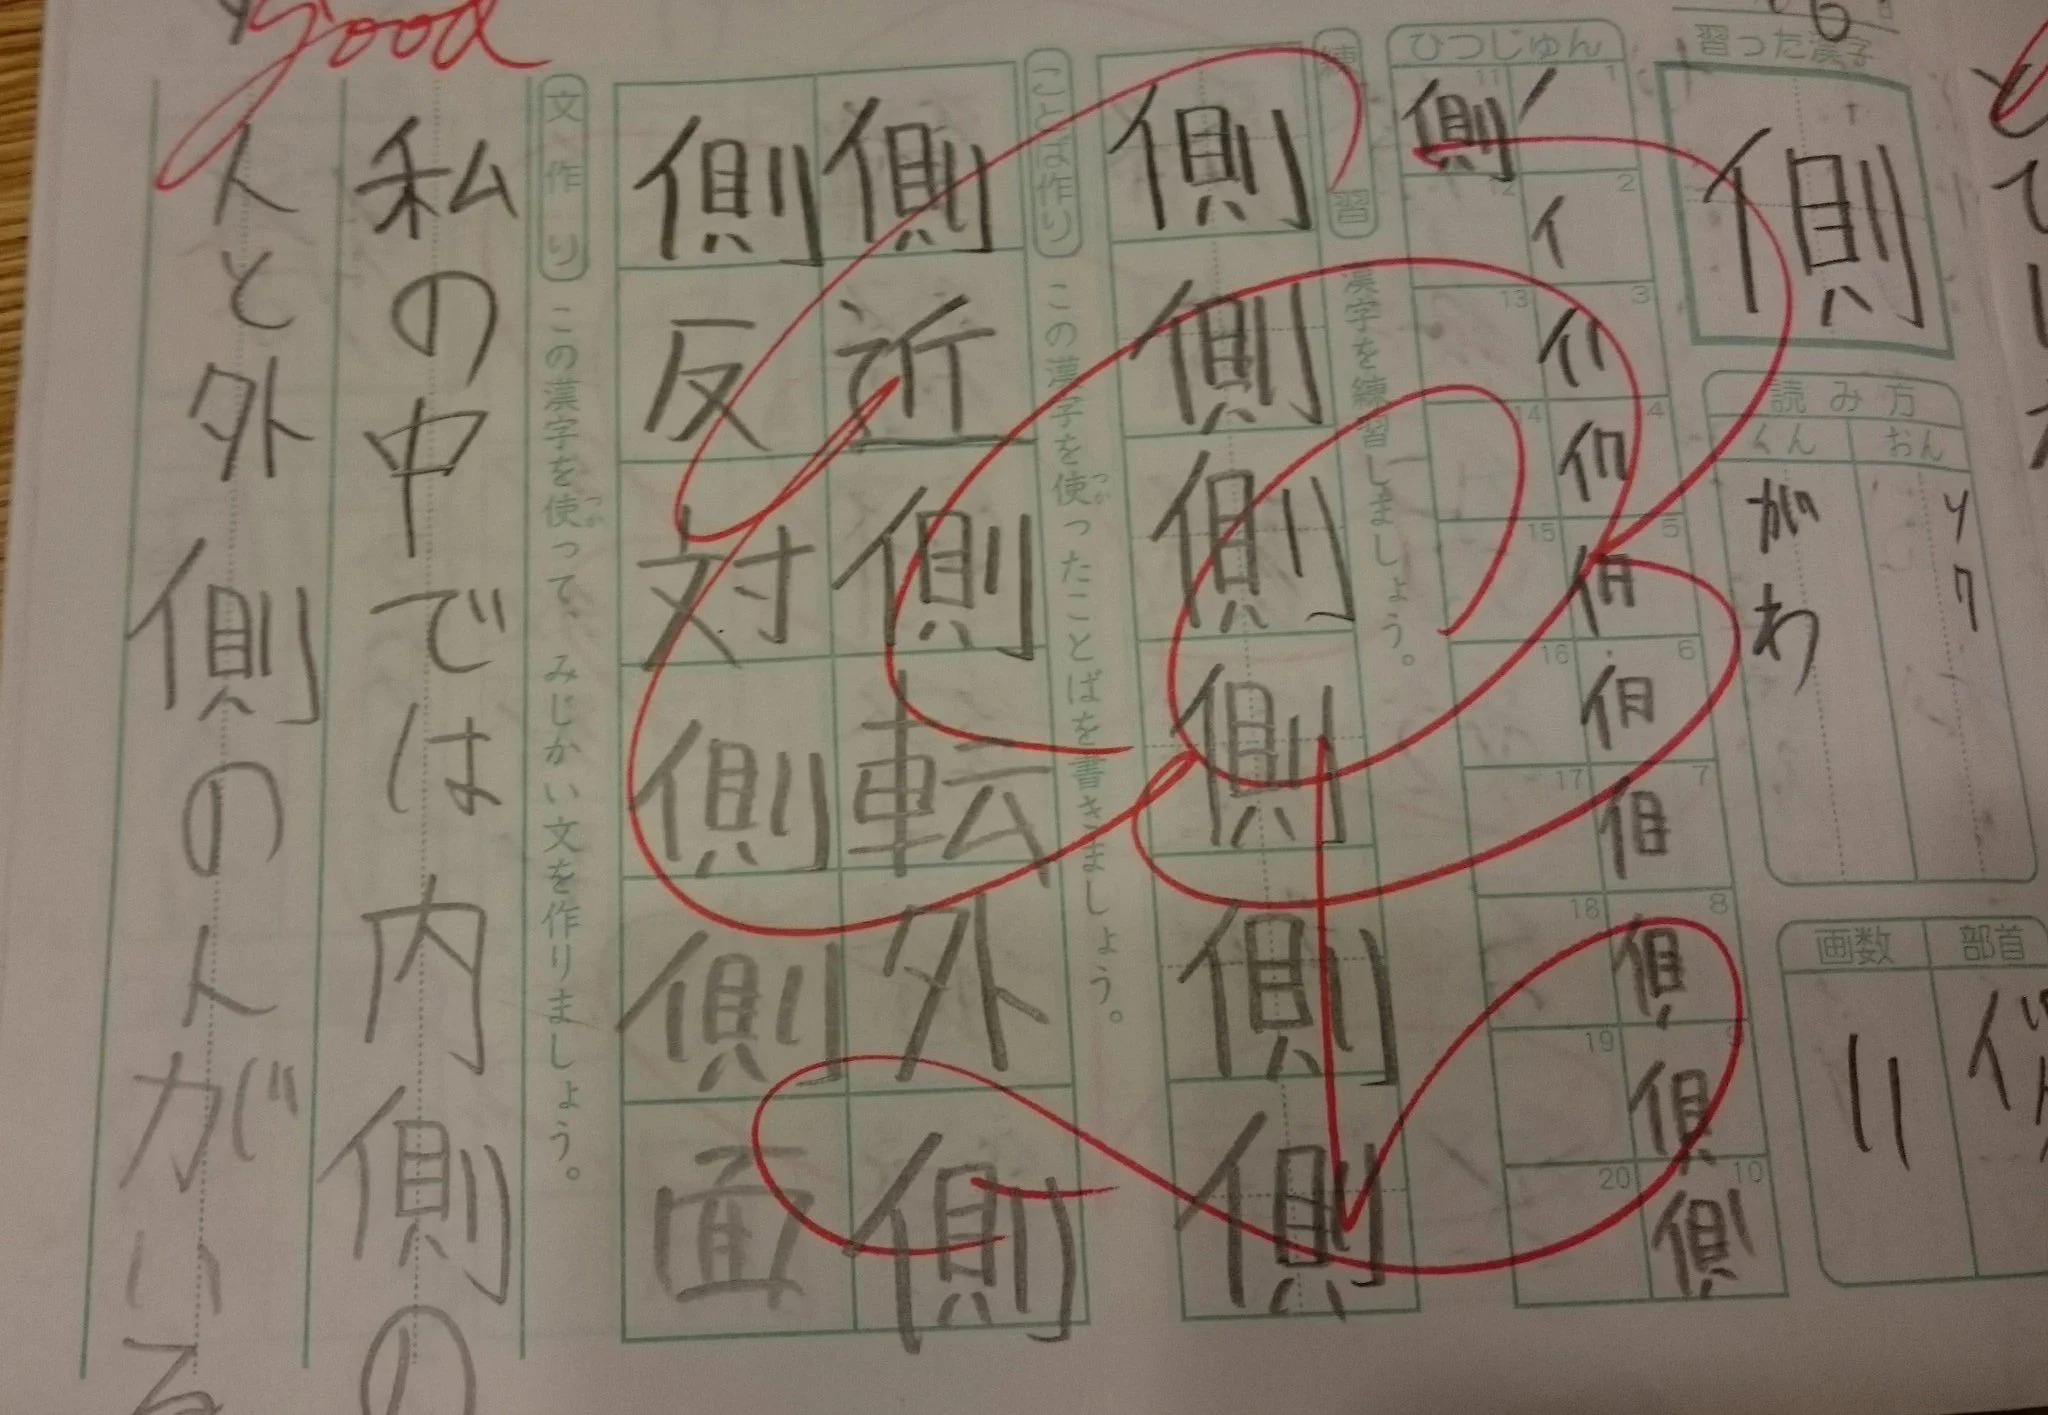 習った漢字
側
読み方
おん
ソク
くん
がわ
部首
画数
11
ひつじゅん
1
2
3
4
5
6
7
8
9
10
11 側
12
13
14
15
16
17
18
19
20
練習 漢字を練習しましょう。
側
側
側
側
側
側
ことば作り この漢字を使ったことばを書きましょう。
つか
側近側転外側
側反対側側面
文作り この漢字を使って、みじかい文を作りましょう。
つか
私の中では内側の
人と外側の人がいる
good